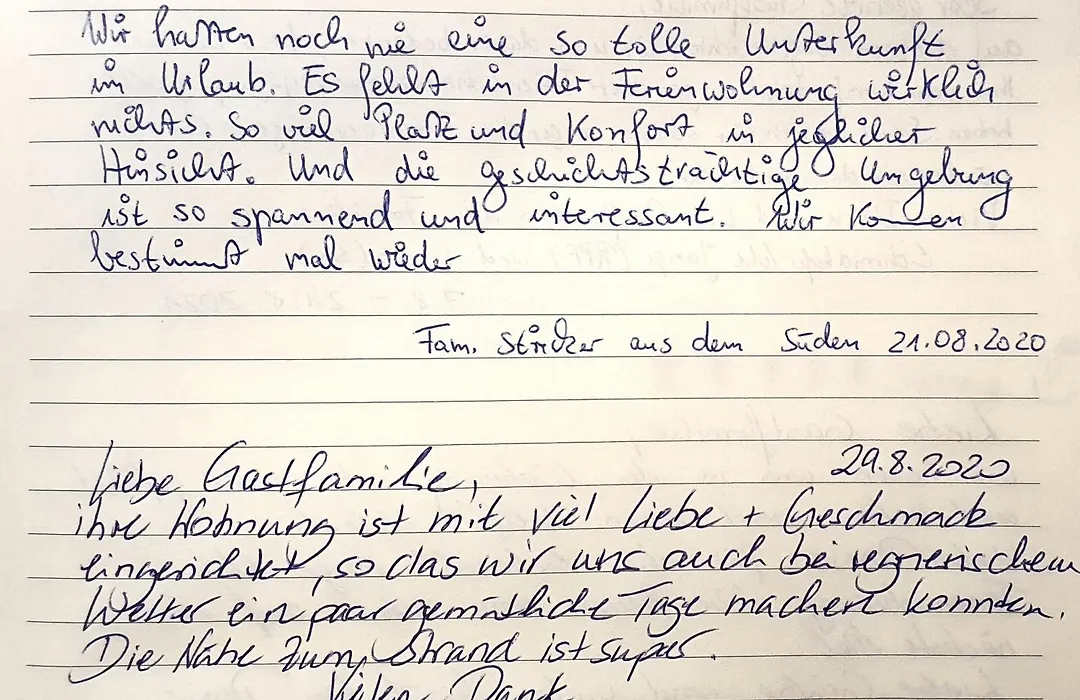 Wir hatten noch nie eine so tolle Unterkunft
im Urlaub. Es fehlt in der Ferienwohnung wirklich
nichts. So viel Platz und Komfort in jeglicher
Hinsicht. Und die geschichtsträchtige Umgebung
ist so spannend und interessant. Wir kommen
bestimmt mal wieder
Fam. aus dem Süden 21.08.2020
29.8.2020
Liebe Gastfamilie,
ihre Wohnung ist mit viel Liebe + Geschmack
eingerichtet, so das wir uns auch bei regnerischem
Wetter ein paar gemütliche Tage machen konnten.
Die Nähe zum Strand ist super.
Vielen Dank